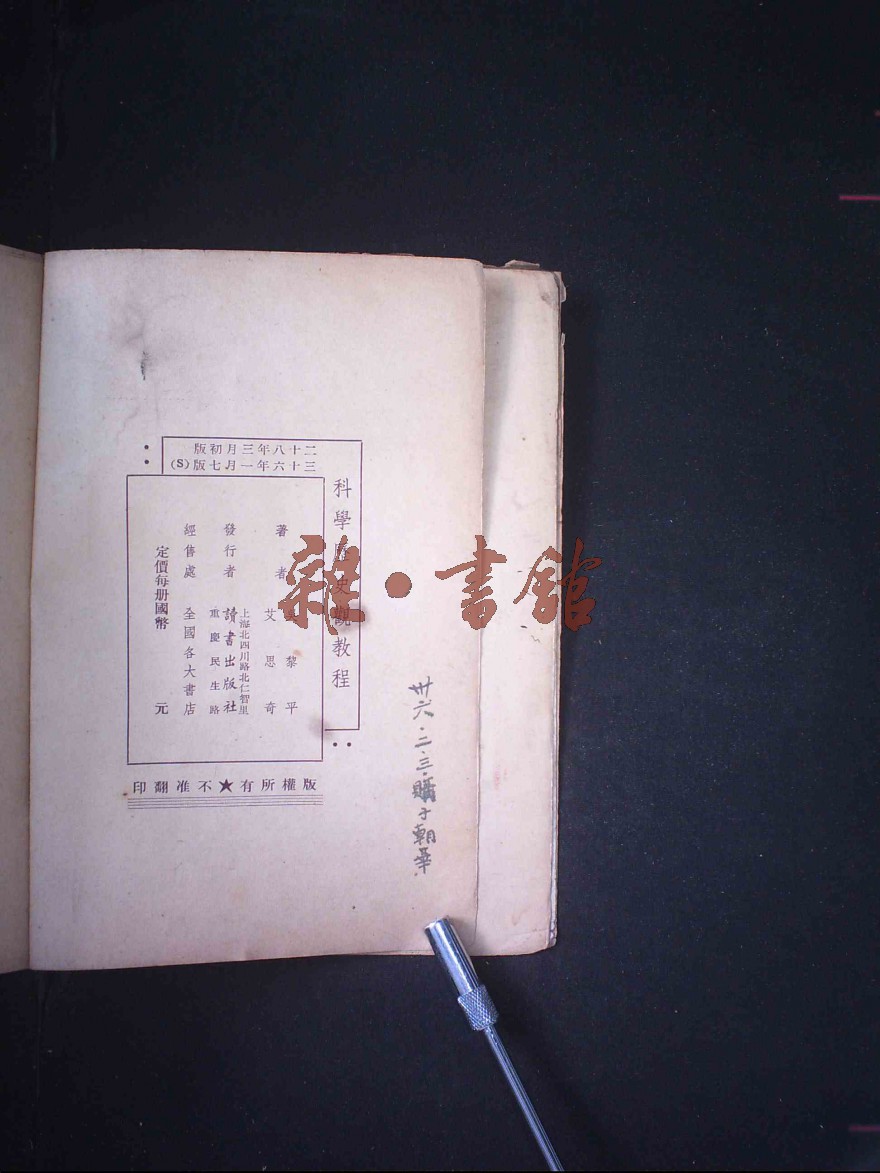 二十八年三月初版
三十六年一月七版(S)
科學歷史觀教程
著者 吳黎平
艾思奇
發行者 讀書出版社
上海北四川路北仁智里
重慶民生路
經售處 全國各大書店
定價每册國幣 元
版權所有★不准翻印
卅六·二·三·購于朝華
雜·書館